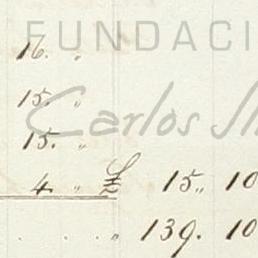 FUNDACI
16. "
15. "
Carlos
15. "
4. " £ 15 " 10
. . . " 139. 10